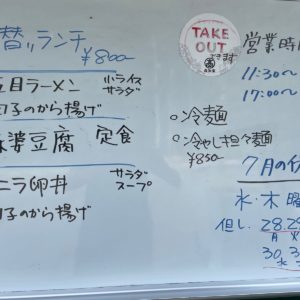 替りランチ
¥800-
五目ラーメン 小ライス
サラダ
団子のから揚げ
麻婆豆腐 定食
ニラ卵丼 サラダ
スープ
団子のから揚げ
TAKE
OUT
できます
営業時
11:30〜
17:00〜
○冷麺
○冷やし担々麺
¥850-
7月の
水・木曜
但し、28.29
月 火
30.3
水